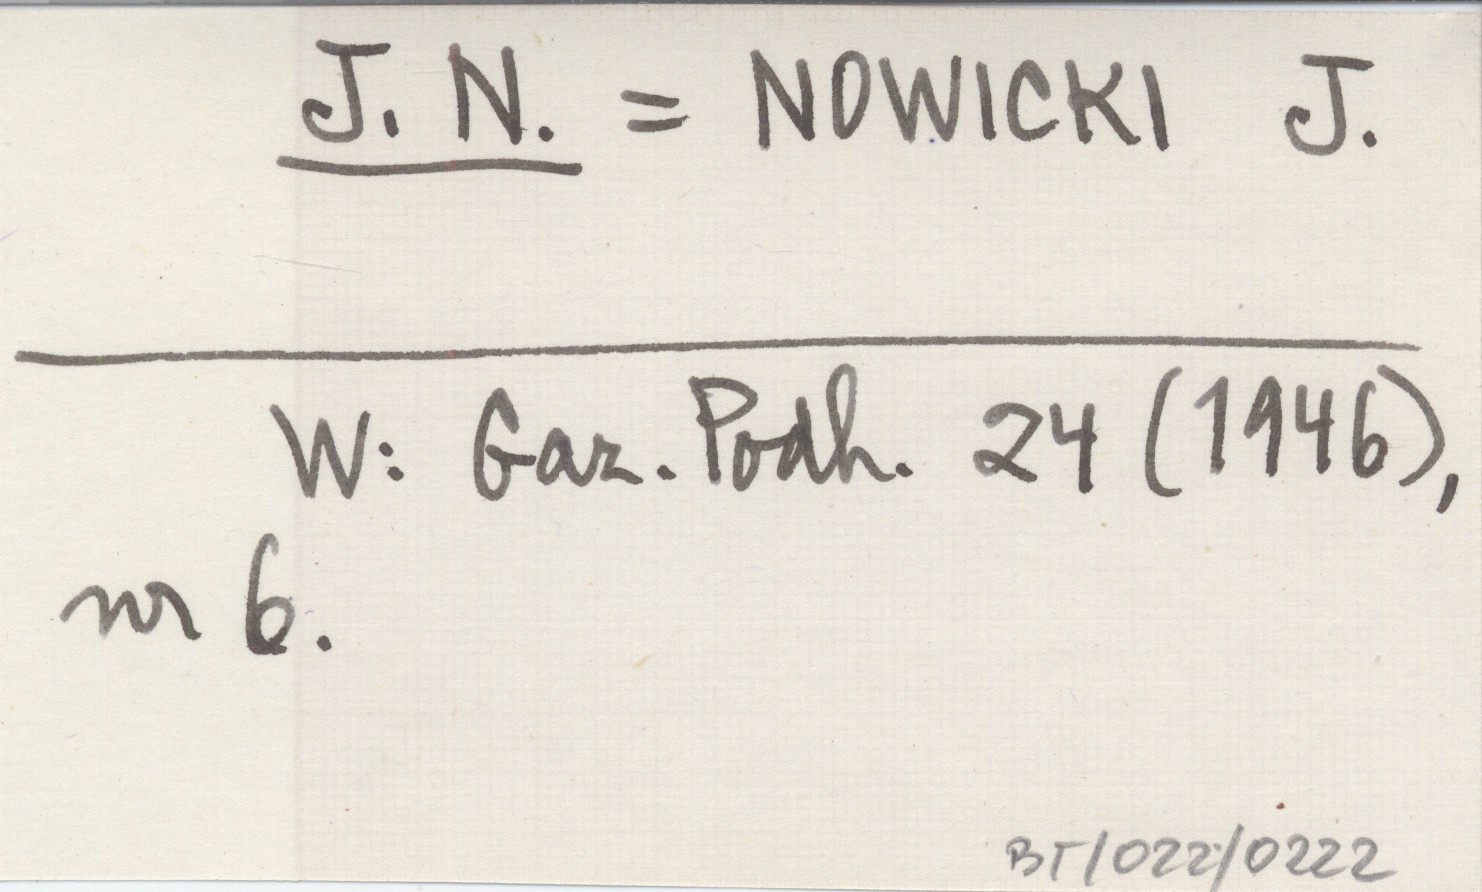 J. N. = NOWICKI J.
W: Gaz. Podh. 24 (1946),
nr 6.
BT/022/0222